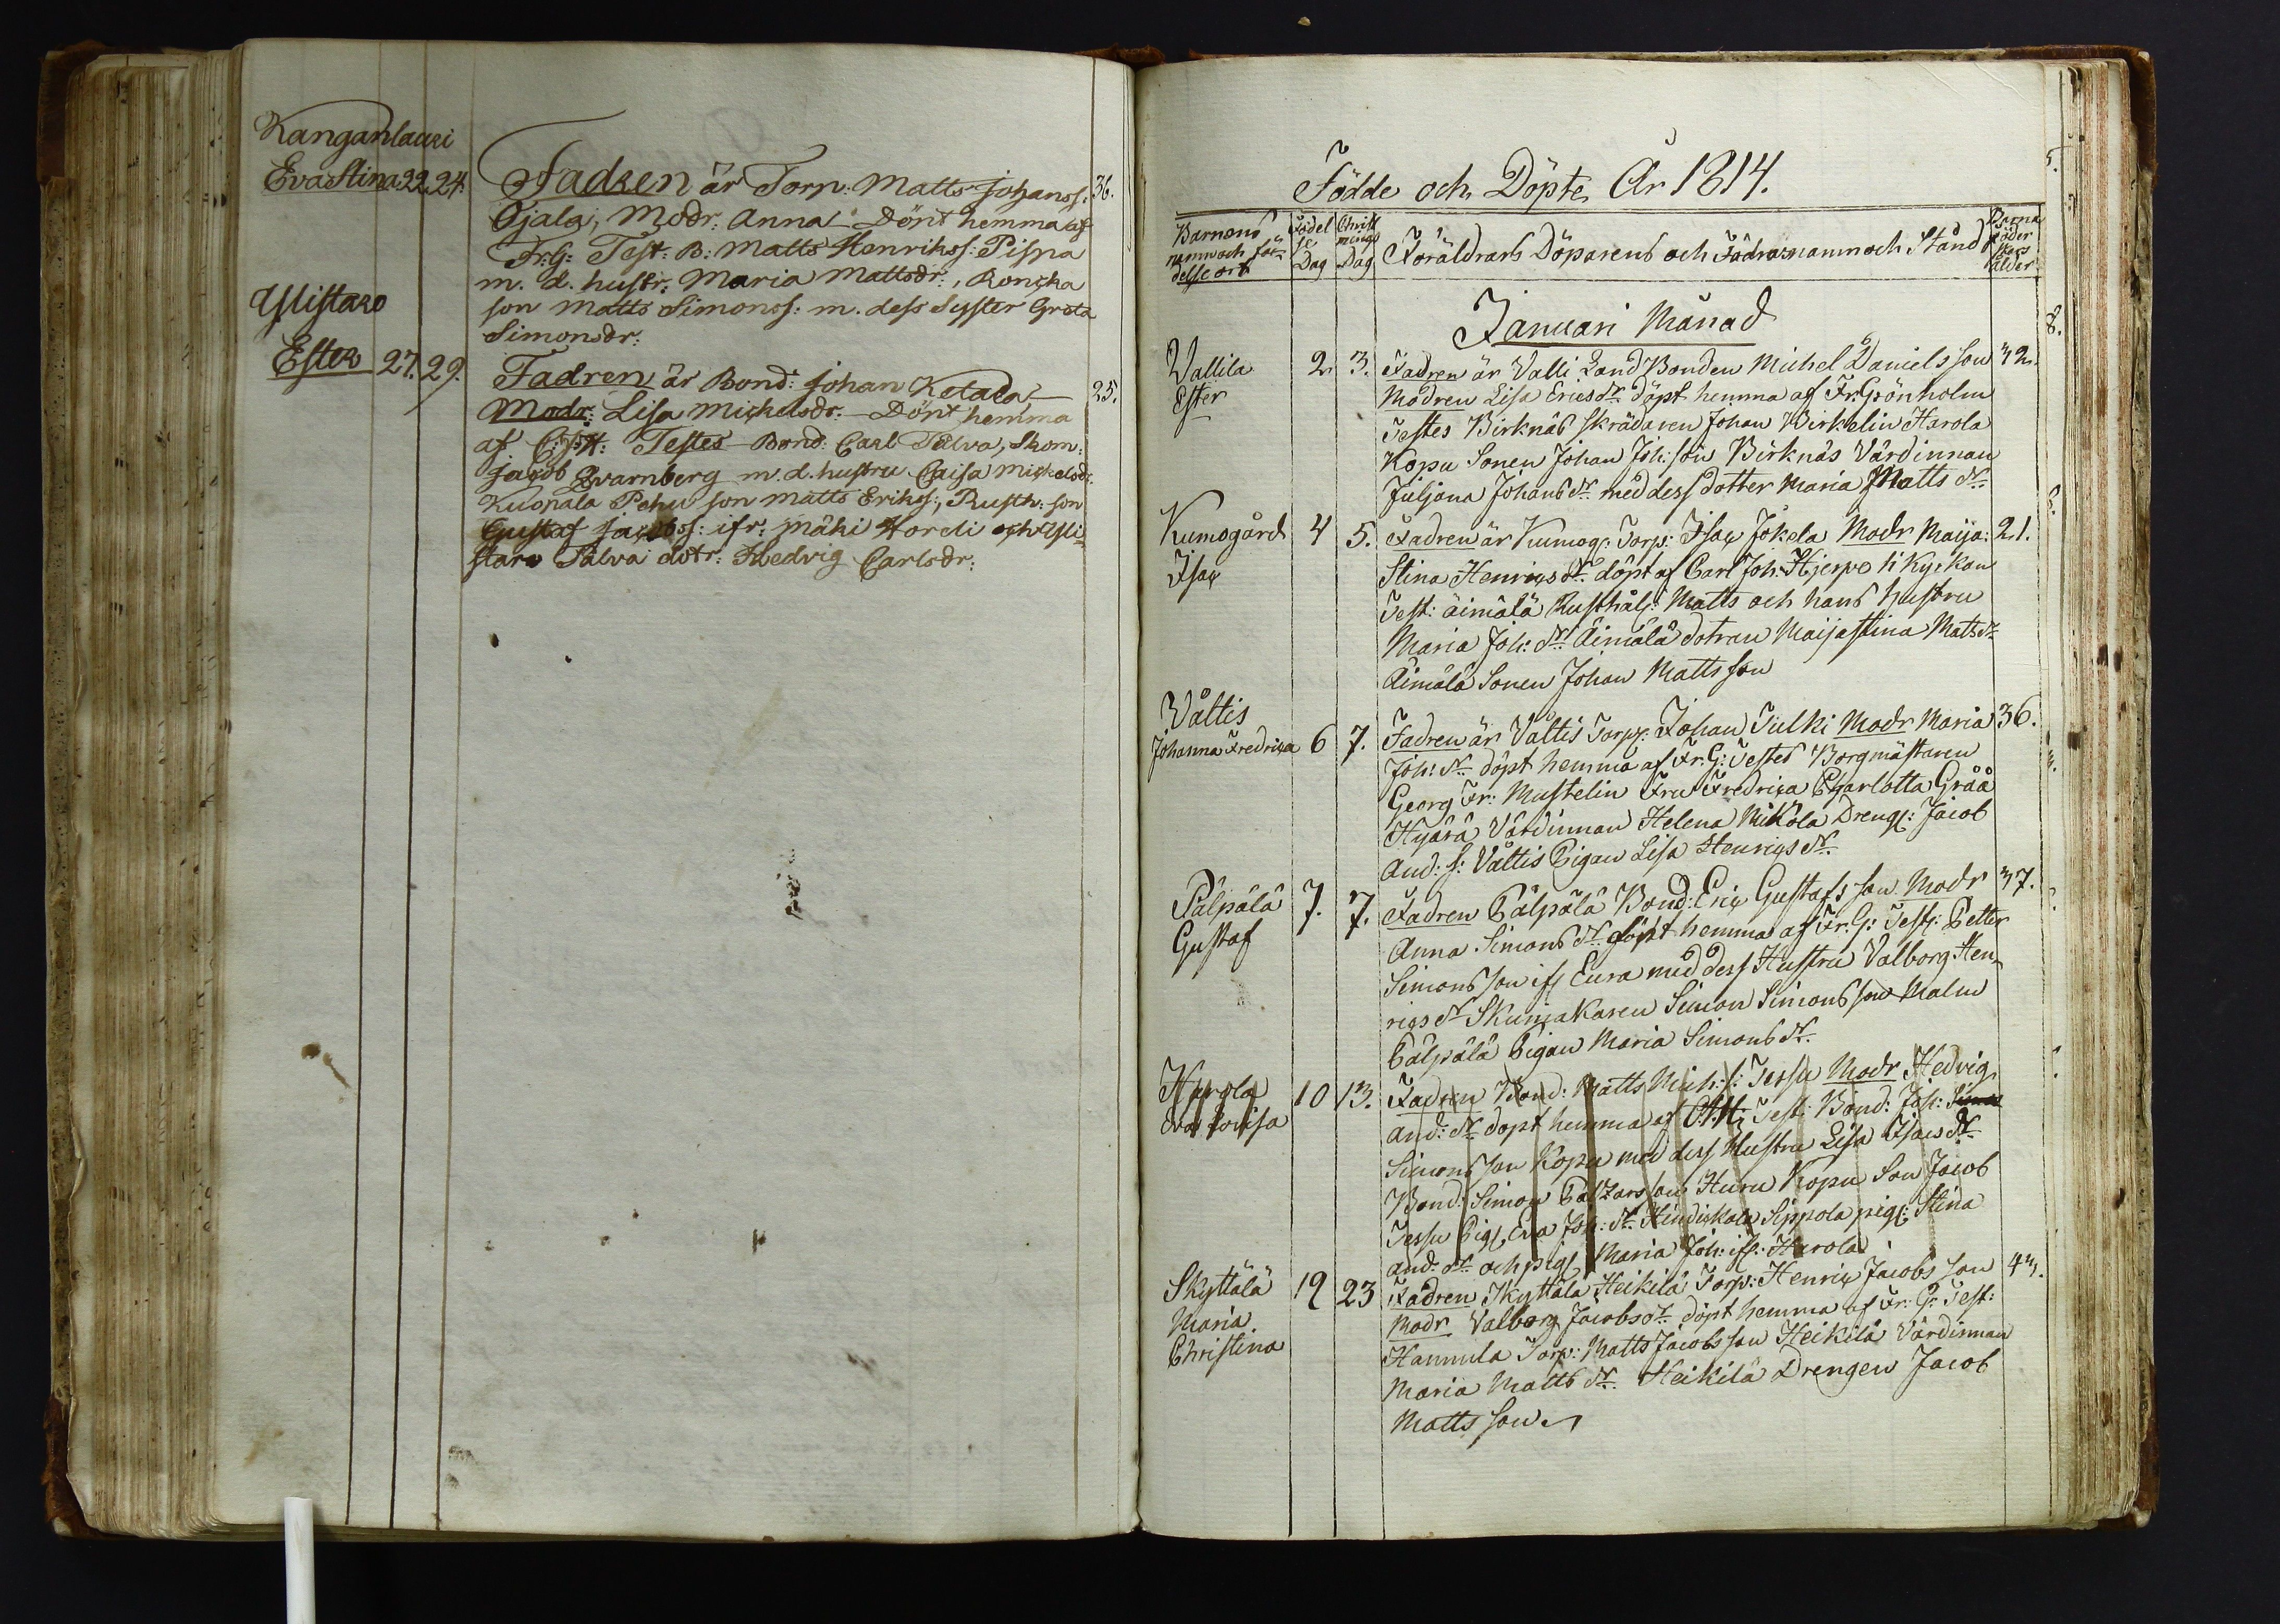 Kanganlauri
Eva Stina 22. 24. Fadren är Torp: Matts Johanss: 36.
Ojala, Modr: Anna Döpt hemma af
Fr. G: Test: B: Matts Henrikss: Pispa
m. d. hustr: Maria Mattsdr:,
son Matts Simonss: m. dess Syster Greta
Simonsdr:
Ylistaro
Ester 27. 29. Fadren är Bond: Johan Ketala 25.
Modr: Lisa Michelsdr: Döpt hemma
af Testes Bond: Carl Talva, Skom:
Jacob Qvarnberg m. d. hustru Caisa Michelsdr:
Kuopala Pehu son Matts Erikss:, Rusth: son
Gustaf Jacobss: ifr: Mähi Hordi och Yli-
staro Palva dotr: Hedvig Carlsdr:
Födde och Döpte År 1814.
Barnens namn och födelseort
Födelse Dag
Christnings Dag
Föräldrars Döparens och Fadrasnamn och Stånd
Barnaföderskas ålder
Januari Månad
Vallila 2 3. Fadren är Valli Land Bonden Michel Daniels son 32.
Ester Modren Lisa Erics dr döpt hemma af Fr: Grönholm
Testes Birknäs Skrädaren Johan Birkelin Harola
Kopu Sonen Johan Joh: son Birknäs Värdinnan
Juljana Johans dr med dess dotter Maria Matts dr
Kumogård 4 5. Fadren är Kumog: Torp: Isac Jokela Modr Maija: 21.
Isac Stina Henrics dr döpt af Carl Joh: Hjerpe i Kyrkan
Test: äimälä Rusthål: Matts och hans hustru
Maria Joh: dr Äimälä dotran Maijastina Matts dr
Äimälä Sonen Johan Matts son
Våltis
Johanna Fredrica 6 7. Fadren är Våltis Torp: Johan Sulki Modr Maria 36.
Joh: dr döpt hemma af Fr. G: Testes Borgmästaren
Georg Fr: Mustelin Fru Fredrica Charlotta Gråå
Hyärä Värdinnan Helena Mikola Dreng: Jacob
And: s: Våltis Pigan Lisa Henrics dr
Pälpälä 7. 7. Fadren Pälpälä Bond: Eric Gustafs son Modr 37.
Gustaf Anna Simons dr döpt hemma af Fr. G: Test: Petter
Simons son if Eura med dess Hustru Valborg Hen-
rics dr Skumakaren Simon Simons son Malm
Pälpälä Pigan Maria Simons dr
Harola 10 13. Fadren Bond: Matts Mich: s: Tessu Modr Hedvig
Eva Lovisa And: dr döpt hemma af Test: Bond: Joh:
Simons son Kopu med dess Hustru Lisa Isacs dr
Bond: Simon Baltzars son Huru Kopu Son Jacob
Tessu Pig: Eva Joh: dr Sippola pig: Stina
And: dr och pig: Maria Joh: if: Harola
Skyttälä 19 23 Fadren Skyttälä Heikilä Torp: Henric Jacobs son 43.
Maria Modr Valborg Jacobs dr döpt hemma af Fr. G: Test:
Christina Hannula Torp: Matts Jacobs son Heikilä Värdinnan
Maria Matts dr Heikilä Drengen Jacob
Matts son